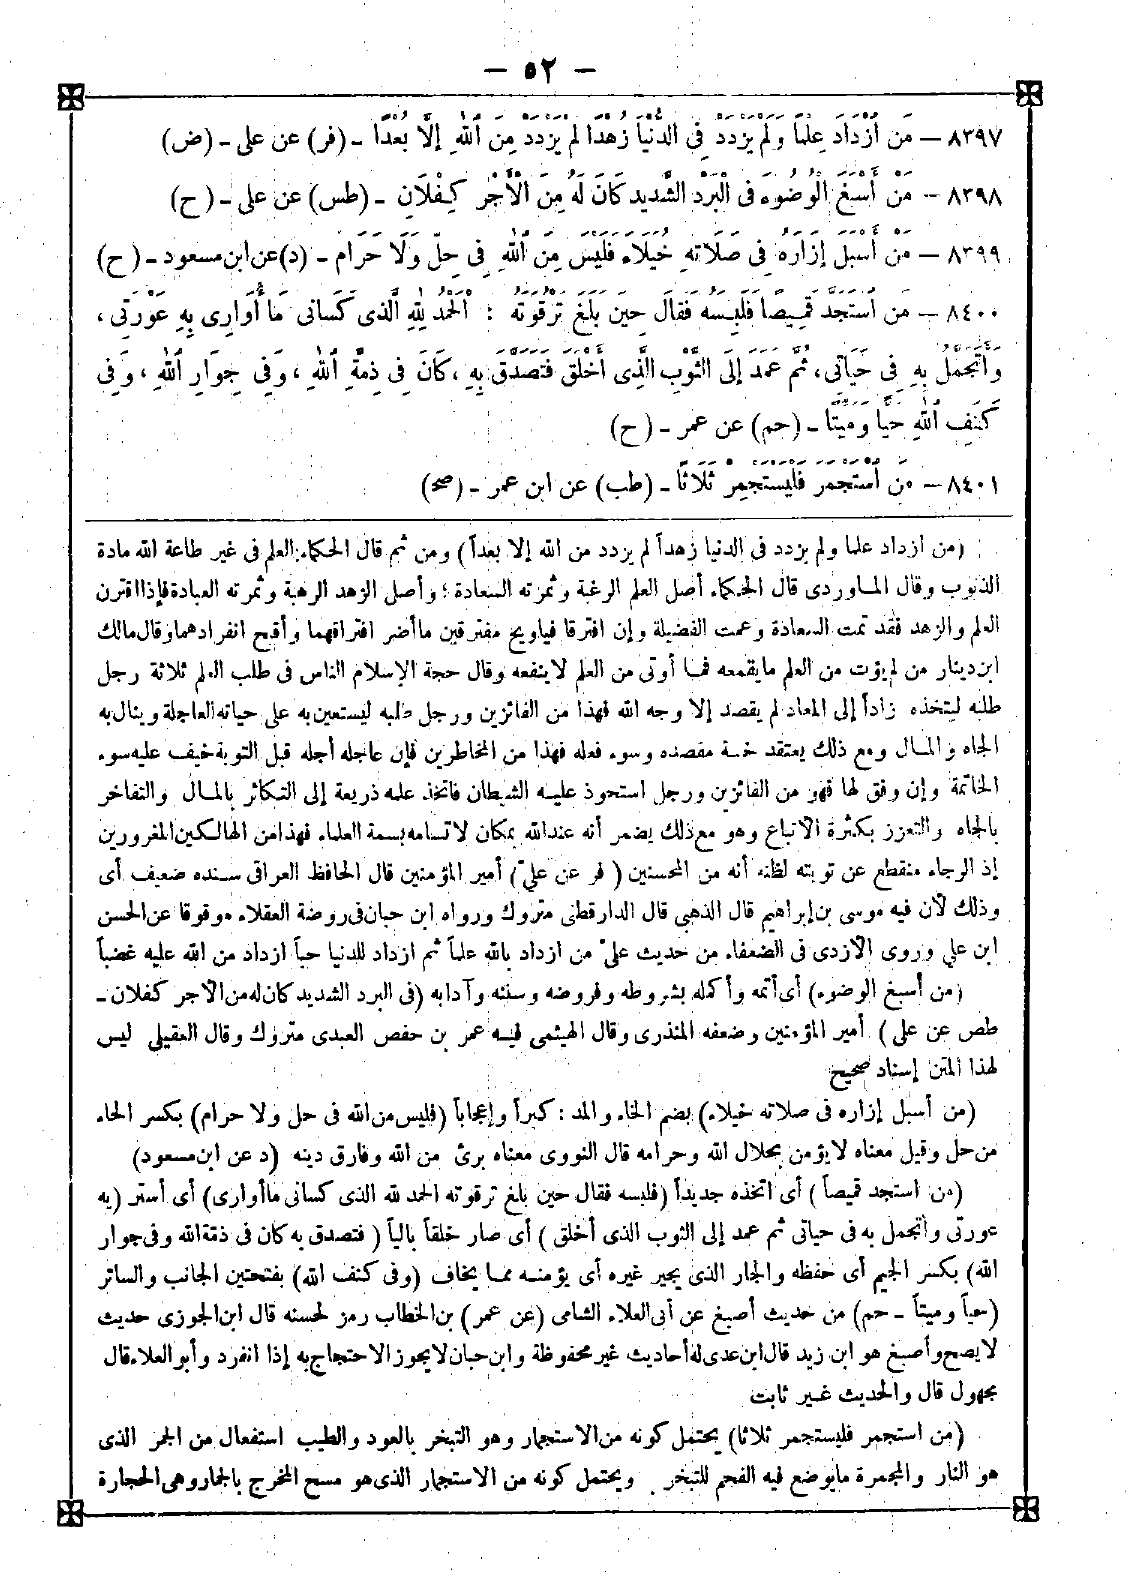 — ٥٢ —
٨٣٩٧ — مَنِ ٱزْدَادَ عِلْمًا وَلَمْ يَزْدَدْ فِى الدُّنْيَا زُهْدًا لَمْ يَزْدَدْ مِنَ ٱللهِ إِلَّا بُعْدًا – (فر) عن على – (ض)
٨٣٩٨ – مَنْ أَسْبَغَ الْوُضُوءَ فِى الْبَرْدِ الشَّدِيدِ كَانَ لَهُ مِنَ الْأَجْرِ كِفْلَانِ – (طس) عن على – (ح)
٨٣٩٩ – مَنْ أَسْبَلَ إِزَارَهُ فِى صَلَاتِهِ خُيَلَاءَ فَلَيْسَ مِنَ ٱللهِ فِى حِلٍّ وَلَا حَرَامٍ – (د) عن ابن مسعود – (ح)
٨٤٠٠ – مَنِ ٱسْتَجَدَّ قَمِيصًا فَلَبِسَهُ فَقَالَ حِينَ بَلَغَ تَرْقُوَتَهُ : ٱلْحَمْدُ لِلهِ الَّذِى كَسَانِى مَا أُوَارِى بِهِ عَوْرَتِى ،
وَأَتَجَمَّلُ بِهِ فِى حَيَاتِى، ثُمَّ عَمَدَ إِلَى الثَّوْبِ الَّذِى أَخْلَقَ فَتَصَدَّقَ بِهِ ، كَانَ فِى ذِمَّةِ ٱللهِ ، وَفِى جِوَارِ ٱللهِ ، وَفِى
كَنَفِ ٱللهِ حَيًّا وَمَيِّتًا – (حم) عن عمر – (ح)
٨٤٠١ – مَنِ ٱسْتَجْمَرَ فَلْيَسْتَجْمِرْ ثَلَاثًا – (طب) عن ابن عمر – (صح)
(من ازداد علما ولم يزدد فى الدنيا زهداً لم يزدد من الله إلا بعداً) ومن ثم قال الحكماء: العلم فى غير طاعة الله مادة
الذنوب وقال الماوردى قال الحكماء أصل العلم الرغبة وثمرته السعادة ؛ وأصل الزهد الرهبة وثمرته العبادة فإذا اقترن
العلم والزهد فقد تمت السعادة وعمت الفضيلة وإن افترقا فياويح مفترقين ما أضر افتراقهما وأقبح انفرادهما وقال مالك
ابن دينار من لم يؤت من العلم ما يقمعه فما أوتى من العلم لا ينفعه وقال حجة الإسلام الناس فى طلب العلم ثلاثة رجل
طلبه ليتخذه زاداً إلى المعاد لم يقصد إلا وجه الله فهذا من الفائزين ورجل طلبه ليستعين به على حياته العاجلة وينال به
الجاه والمال ومع ذلك يعتقد خسة مقصده وسوء فعله فهذا من المخاطرين فإن عاجله أجله قبل التوبة خيف عليه سوء
الخاتمة وإن وفق لها فهو من الفائزين ورجل استحوذ عليه الشيطان فاتخذ علمه ذريعة إلى التكاثر بالمال والتفاخر
بالجاه والتعزز بكثرة الاتباع وهو مع ذلك يضمر أنه عند الله بمكان لاتسامه بسمة العلماء فهذا من الهالكين المغرورين
إذ الرجاء منقطع عن توبته لظنه أنه من المحسنين (فر عن علىّ) أمير المؤمنين قال الحافظ العراقى سنده ضعيف أى
وذلك لأن فيه موسى بن إبراهيم قال الذهبى قال الدارقطنى متروك ورواه ابن حبان فى روضة العقلاء موقوفا عن الحسن
ابن على وروى الأزدى فى الضعفاء من حديث علىّ من ازداد بالله علماً ثم ازداد للدنيا حباً ازداد من الله عليه غضباً
(من أسبغ الوضوء) أى أتمه وأكمله بشروطه وفروضه وسننه وآدابه (فى البرد الشديد كان له من الأجر كفلان –
طص عن على) أمير المؤمنين وضعفه المنذرى وقال الهيثمى فيه عمر بن حفص العبدى متروك وقال العقيلى ليس
لهذا المتن إسناد صحيح
(من أسبل إزاره فى صلاته خيلاء) بضم الخاء والمد : كبراً وإعجاباً (فليس من الله فى حل ولا حرام) بكسر الحاء
من حل وقيل معناه لا يؤمن بحلال الله وحرامه قال النووى معناه برئ من الله وفارق دينه (د عن ابن مسعود)
(من استجد قميصاً) أى اتخذه جديداً (فلبسه فقال حين بلغ ترقوته الحمد لله الذى كسانى ما أوارى) أى أستر (به
عورتى وأتجمل به فى حياتى ثم عمد إلى الثوب الذى أخلق) أى صار خلقاً بالياً (فتصدق به كان فى ذمة الله وفى جوار
الله) بكسر الجيم أى حفظه والجار الذى يجير غيره أى يؤمنه مما يخاف (وفى كنف الله) بفتحتين الجانب والساتر
(حياً وميتاً – حم) من حديث أصبغ عن أبى العلاء الشامى (عن عمر) بن الخطاب رمز لحسنه قال ابن الجوزى حديث
لا يصح وأصبغ هو ابن زيد قال ابن عدى له أحاديث غير محفوظة وابن حبان لا يجوز الاحتجاج به إذا انفرد وأبو العلاء قال
مجهول قال والحديث غير ثابت
(من استجمر فليستجمر ثلاثا) يحتمل كونه من الاستجمار وهو التبخر بالعود والطيب استفعال من الجمر الذى
هو النار والمجمرة ما يوضع فيه الفحم للتبخر. ويحتمل كونه من الاستجمار الذى هو مسح المخرج بالجمار وهى الحجارة